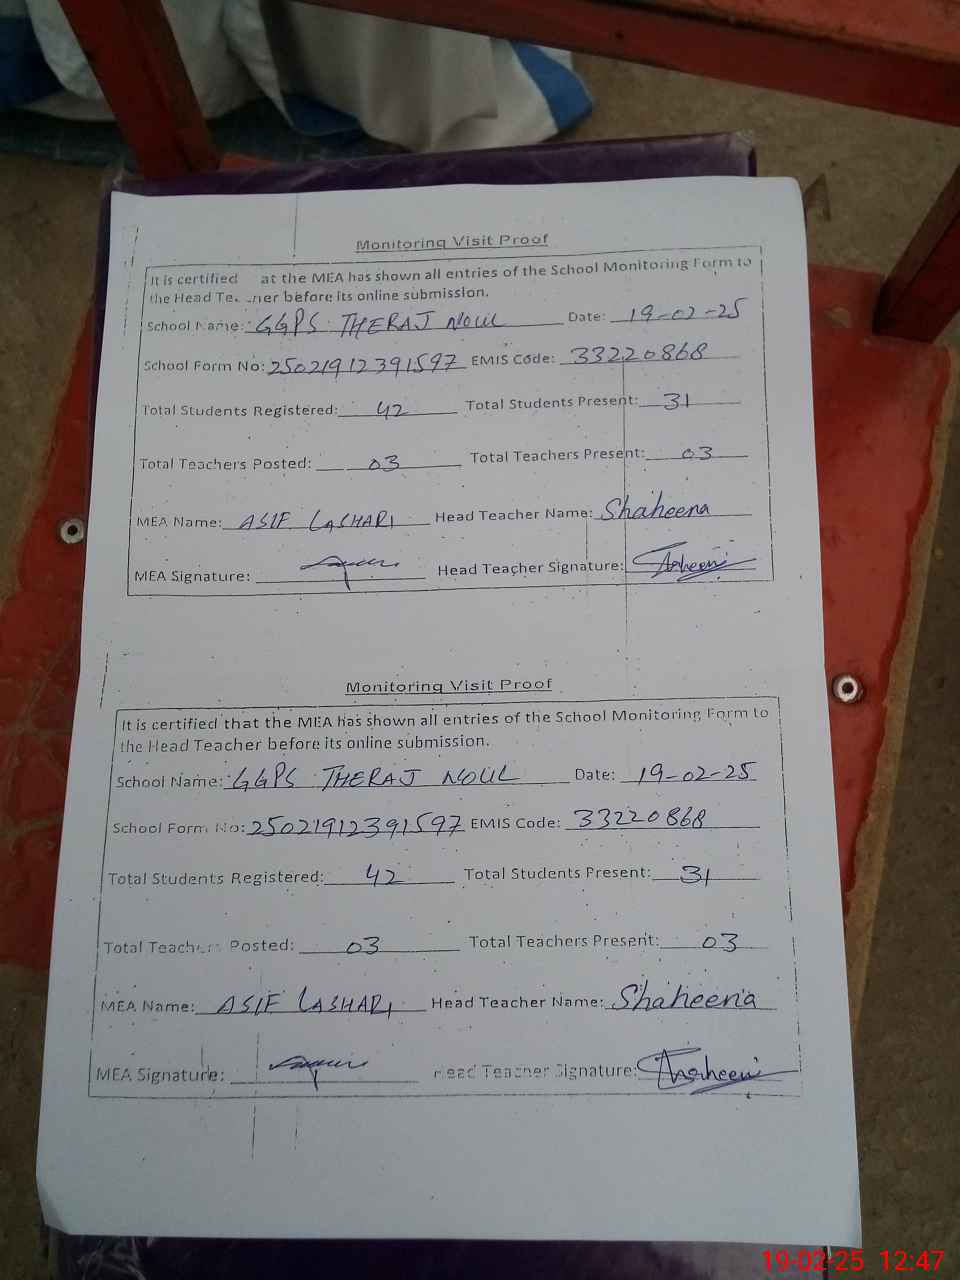 Monitoring Visit Proof
It is certified at the MEA has shown all entries of the School Monitoring Form to
the Head Teacher before its online submission.
School Name: GGPS THERAJ NOUL Date: 19-02-25
School Form No: 25021912391597 EMIS Code: 33220868
Total Students Registered: 42 Total Students Present: 31
Total Teachers Posted: 03 Total Teachers Present: 03
MEA Name: ASIF LASHARI Head Teacher Name: Shaheena
MEA Signature: Head Teacher Signature: Shaheena
Monitoring Visit Proof
It is certified that the MEA has shown all entries of the School Monitoring Form to
the Head Teacher before its online submission.
School Name: GGPS THERAJ NOUL Date: 19-02-25
School Form No: 25021912391597 EMIS Code: 33220868
Total Students Registered: 42 Total Students Present: 31
Total Teachers Posted: 03 Total Teachers Present: 03
MEA Name: ASIF LASHARI Head Teacher Name: Shaheena
MEA Signature: Head Teacher Signature: Shaheena
19-02-25 12:47